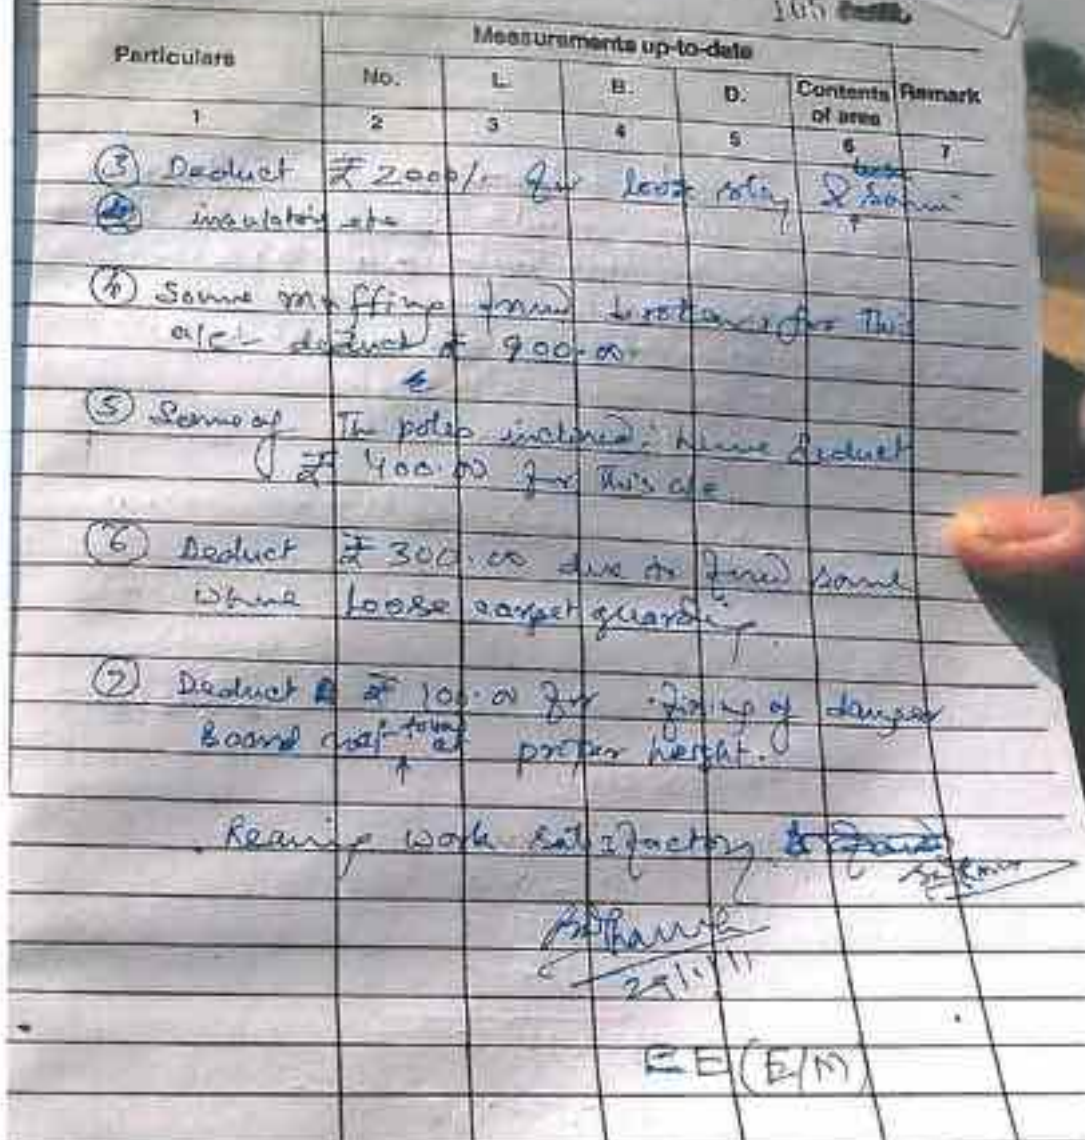 165
Particulars
Measurements up-to-date
No. L. B. D. Contents of area Remark
1 2 3 4 5 6 7
(3) Deduct ₹ 2000/- for loose stay &
insulators etc
(4) Some muffing found for this
a/c deduct ₹ 900.00
(5) Some of The poles inclined; hence deduct
₹ 400.00 for this a/c
(6) Deduct ₹ 300.00 due to found some
where loose carpet guarding
(7) Deduct ₹ 100.00 for fixing of danger
Board not found at proper height.
work satisfactory
29/1/11
EE (E/M)